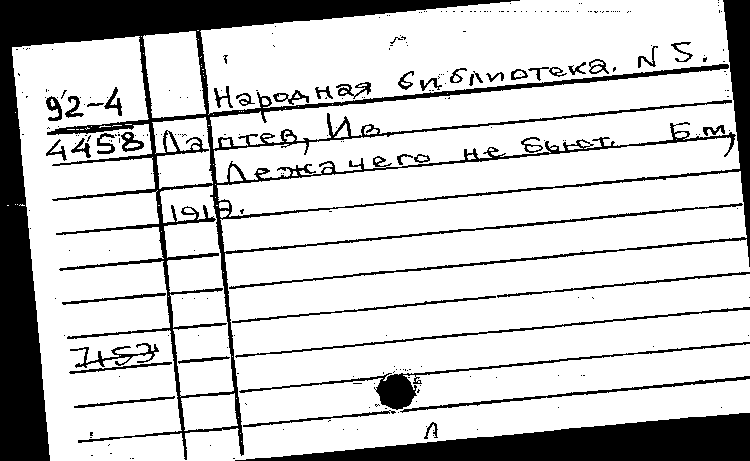 92-4 Народная библиотека. N 5.
4458 Лаптев, Ив.
Лежачего не бьют. Б.м.,
1917.
7153
Л